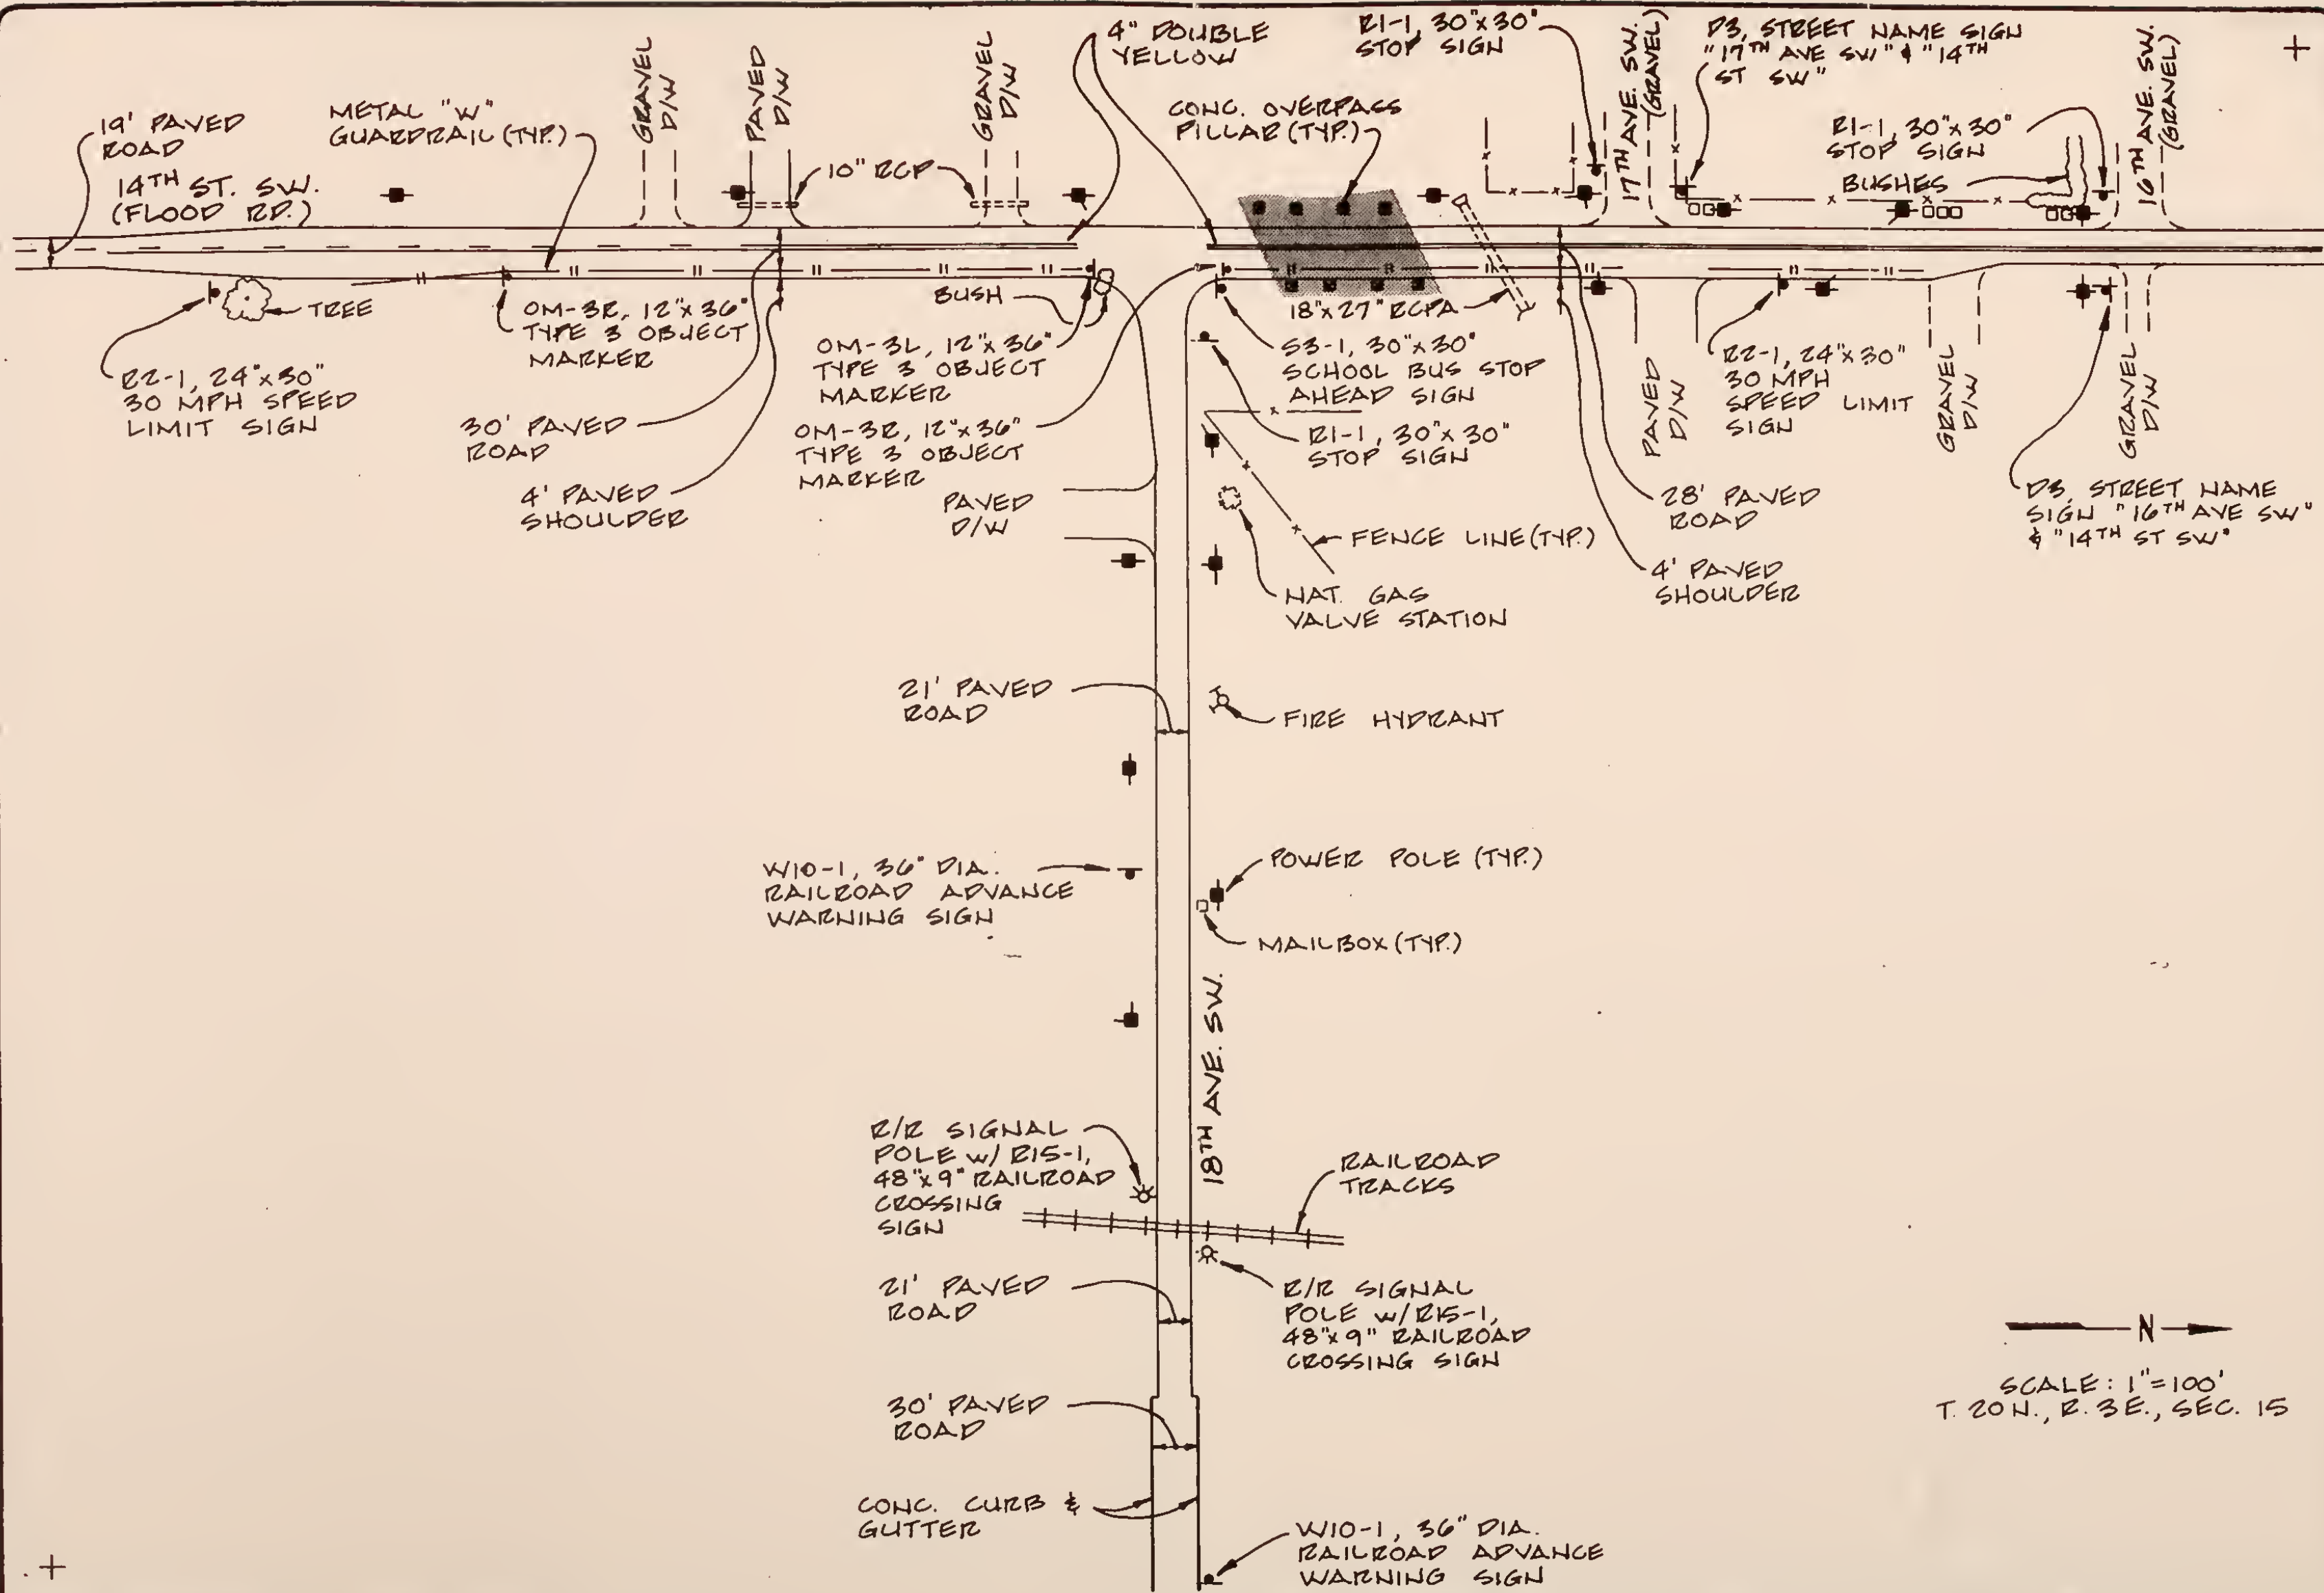 19' PAVED
ROAD
14TH ST. SW.
(FLOOD RD.)
METAL "W"
GUARDRAIL (TYP.)
GRAVEL
D/W
PAVED
D/W
10" RCP
GRAVEL
D/W
4" DOUBLE
YELLOW
R1-1, 30"x30"
STOP SIGN
CONC. OVERPASS
PILLAR (TYP.)
17TH AVE. SW.
(GRAVEL)
D3, STREET NAME SIGN
"17TH AVE SW" & "14TH
ST SW"
R1-1, 30"x30"
STOP SIGN
BUSHES
16TH AVE. SW.
(GRAVEL)
TREE
R2-1, 24"x30"
30 MPH SPEED
LIMIT SIGN
OM-3R, 12"x36"
TYPE 3 OBJECT
MARKER
30' PAVED
ROAD
4' PAVED
SHOULDER
BUSH
OM-3L, 12"x36"
TYPE 3 OBJECT
MARKER
OM-3R, 12"x36"
TYPE 3 OBJECT
MARKER
PAVED
D/W
18"x27" RCPA
S3-1, 30"x30"
SCHOOL BUS STOP
AHEAD SIGN
R1-1, 30"x30"
STOP SIGN
FENCE LINE (TYP.)
NAT. GAS
VALVE STATION
PAVED
D/W
28' PAVED
ROAD
4' PAVED
SHOULDER
R2-1, 24"x30"
30 MPH
SPEED LIMIT
SIGN
GRAVEL
D/W
GRAVEL
D/W
D3, STREET NAME
SIGN "16TH AVE SW"
& "14TH ST SW"
21' PAVED
ROAD
FIRE HYDRANT
W10-1, 36" DIA.
RAILROAD ADVANCE
WARNING SIGN
POWER POLE (TYP.)
MAILBOX (TYP.)
18TH AVE. SW.
R/R SIGNAL
POLE w/ R15-1,
48"x9" RAILROAD
CROSSING
SIGN
RAILROAD
TRACKS
21' PAVED
ROAD
R/R SIGNAL
POLE w/ R15-1,
48"x9" RAILROAD
CROSSING SIGN
30' PAVED
ROAD
CONC. CURB &
GUTTER
W10-1, 36" DIA.
RAILROAD ADVANCE
WARNING SIGN
N
SCALE: 1"=100'
T. 20 N., R. 3 E., SEC. 15